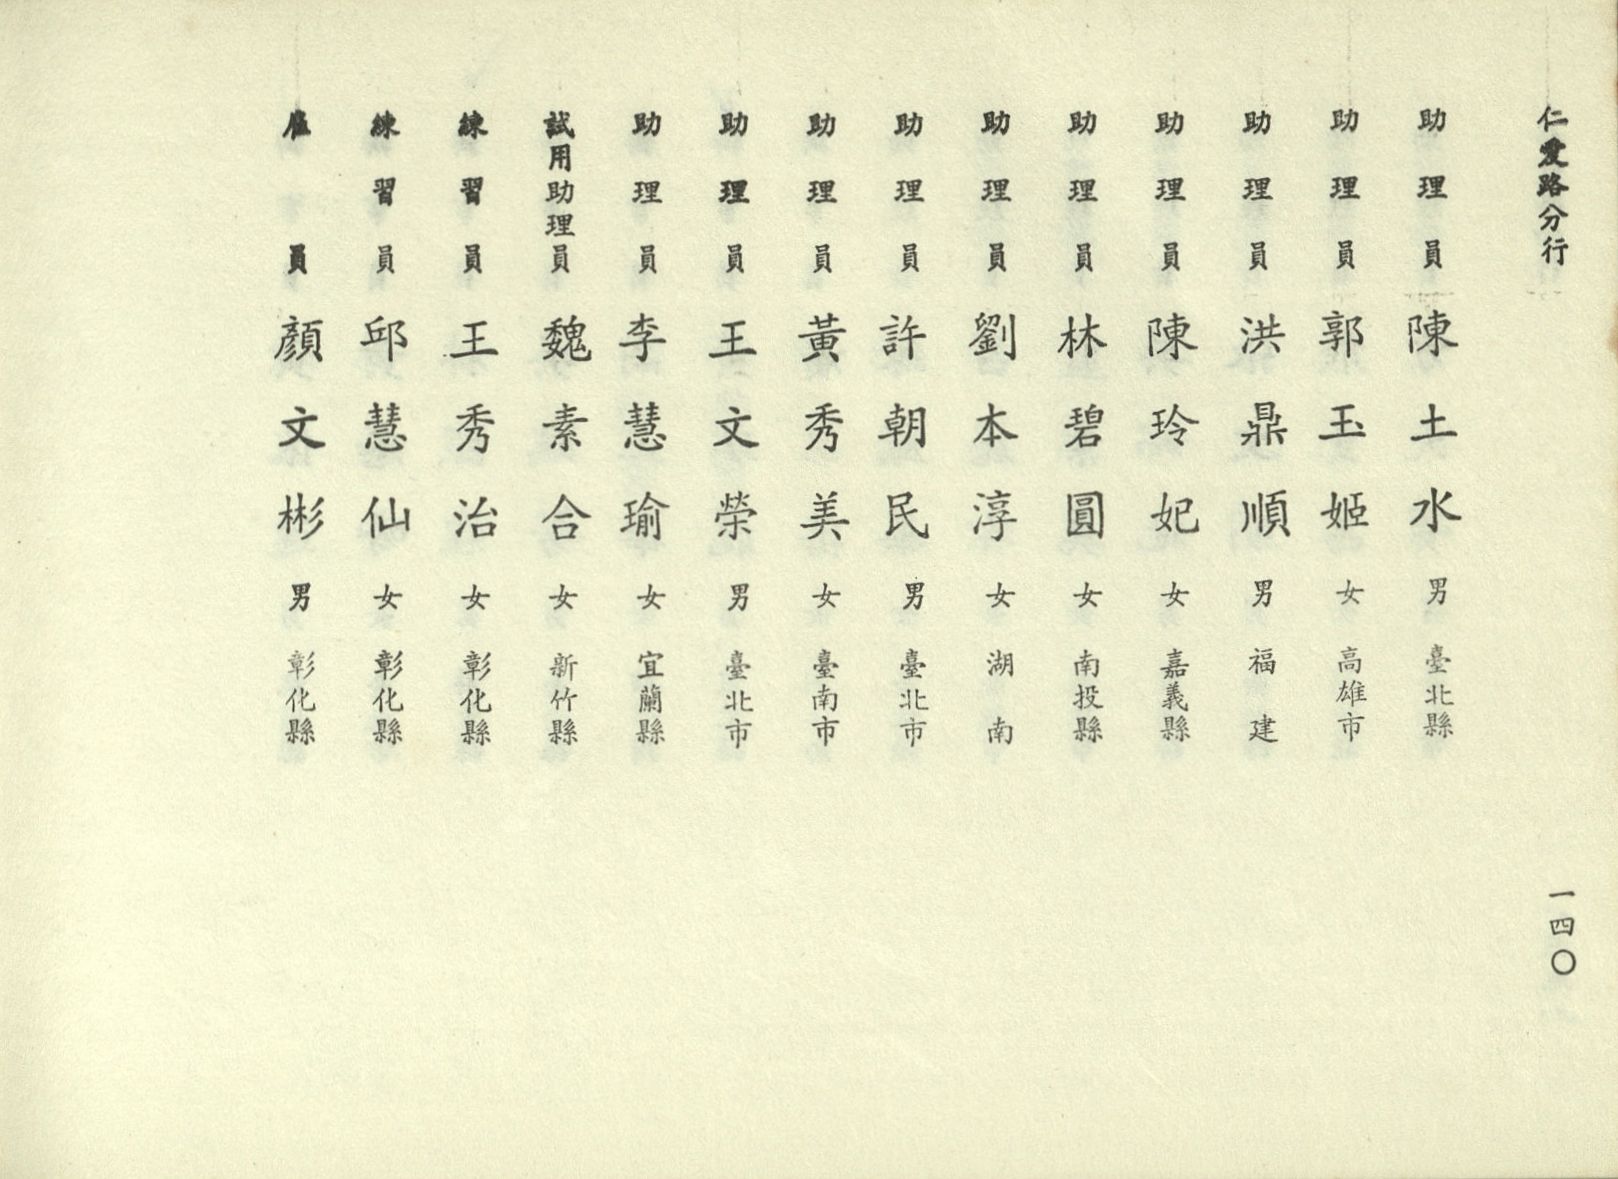 仁愛路分行
一四〇
助理員 陳土水 男 臺北縣
助理員 郭玉姬 女 高雄市
助理員 洪鼎順 男 福建
助理員 陳玲妃 女 嘉義縣
助理員 林碧圓 女 南投縣
助理員 劉本淳 女 湖南
助理員 許朝民 男 臺北市
助理員 黃秀美 女 臺南市
助理員 王文榮 男 臺北市
助理員 李慧瑜 女 宜蘭縣
試用助理員 魏素合 女 新竹縣
練習員 王秀治 女 彰化縣
練習員 邱慧仙 女 彰化縣
雇員 顏文彬 男 彰化縣